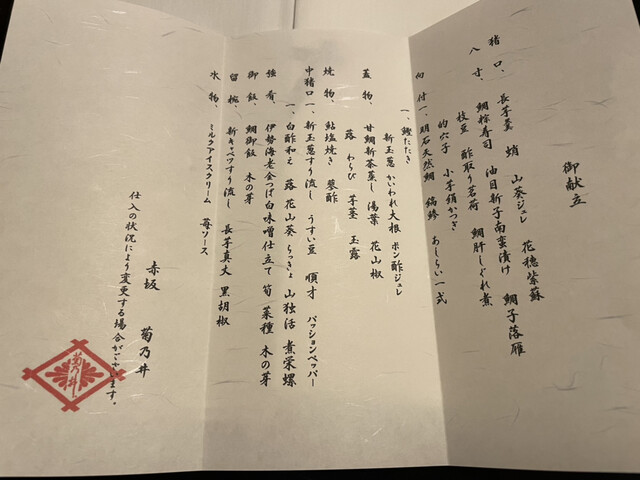 御献立
猪口、 長芋羹 蛸 山葵ジュレ 花穂紫蘇
八寸、 鯛粽寿司 油目新子南蛮漬け 鯛子落雁
枝豆 酢取り茗荷 鯛肝しぐれ煮
的穴子 小芋絹かつぎ
向付一、 明石天然鯛 縞鯵 あしらい一式
一、 鰹たたき
新玉葱 かいわれ大根 ポン酢ジュレ
蓋物、 甘鯛新茶蒸し 湯葉 花山椒
蕗 わらび 芋茎 玉露
焼物、 鮎塩焼き 蓼酢
中猪口一、 新玉葱すり流し うすい豆 順才 パッションペッパー
一、 白酢和え 蕗 花山葵 らっきょ 山独活 煮栄螺
強肴、 伊勢海老金つば白味噌仕立て 筍 菜種 木の芽
御飯、 鯛御飯 木の芽
留椀、 新キャベツすり流し 長芋真丈 黒胡椒
水物、 ミルクアイスクリーム 苺ソース
仕入の状況により変更する場合がございます。
赤坂 菊乃井
菊乃井